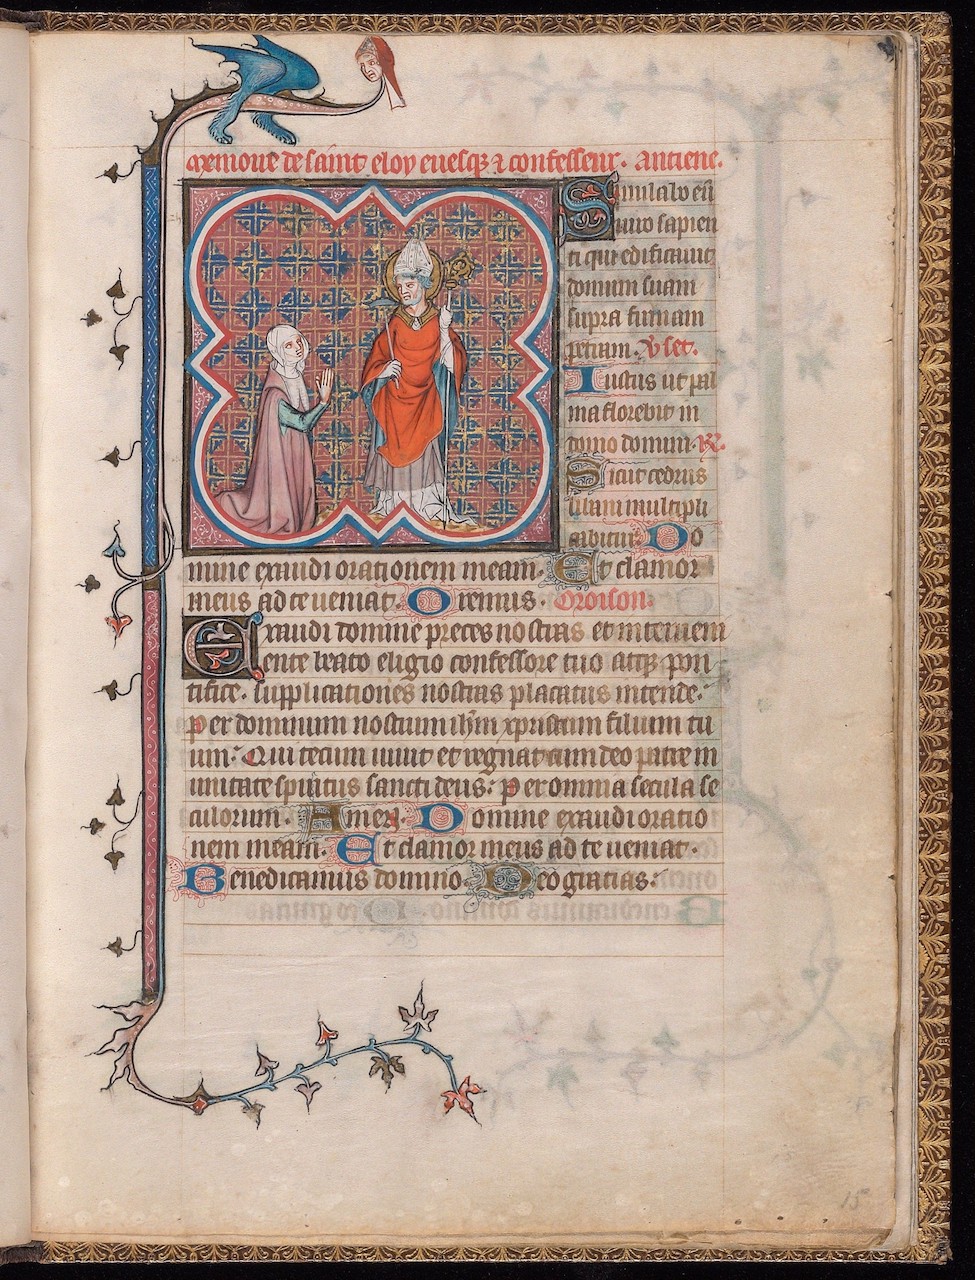 Memoire de saint eloy euesqꝫ ⁊ confesseur. Antiene.
Similabo eū
uiro sapien
ti qui edificauit
domum suam
supra firmam
petram. Vset.
Iustus ut pal
ma florebit in
domo domini. ℟.
Sicut cedrus
libani multipli
cabitur. Do
mine exaudi orationem meam. Et clamor
meus ad te ueniat. Oremus. Oroison.
Exaudi domine preces nostras et interueni
ente beato eligio confessore tuo atqꝫ pon
tifice. supplicationes nostras placatus intende.
Per dominum nostrum ihm̄ xpistum filium tu
um. Qui tecum uiuit et regnat cum deo patre in
unitate spiritus sancti deus. Per omnia secula se
culorum. Amen. Domine exaudi oratio
nem meam. Et clamor meus ad te ueniat.
Benedicamus domino. Deo gratias.
15